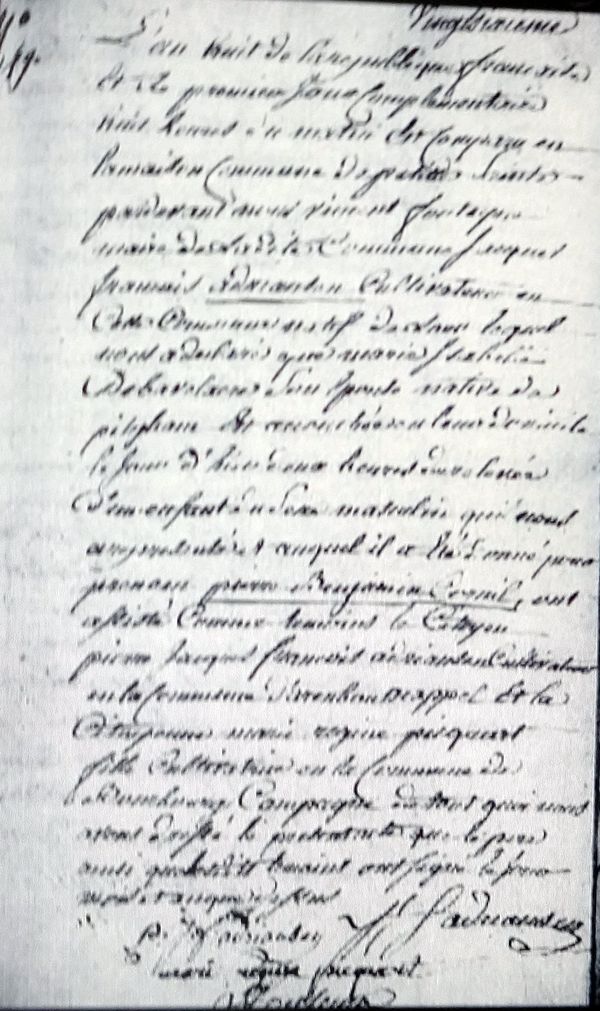 N°
L'an huit de la republique francaise
et le premier jour Complementaire
huit heures du matin est Comparu en
la maison Commune de petite Sinte
pardevant nous
maire de la dite Commune Jacques
francois adriansen Cultivateur en
Cette Commune natif lequel
nous a declaré que marie Isabelle
son epouse native de
pitgham est accouchée en leur domicile
le jour d'hier deux heures de relevée
d'un enfant du sexe masculin qu'il nous
a representé et auquel il a été donné pour
prenom pierre Benjamin Cornil, ont
assisté Comme temoins le Citoyen
pierre Jacques francois adriansen Cultivateur
en la Commune d'arembouscappel et la
Citoyenne marie regine picquart
fille Cultivatrice en la Commune de
Campagne de tout quoi nous
avons dressé le present acte que le pere
ainsi que les dits temoins ont signé le jour
mois et an que dessus
P. J. F. adriansen J. F. adriansen
marie regine picquart